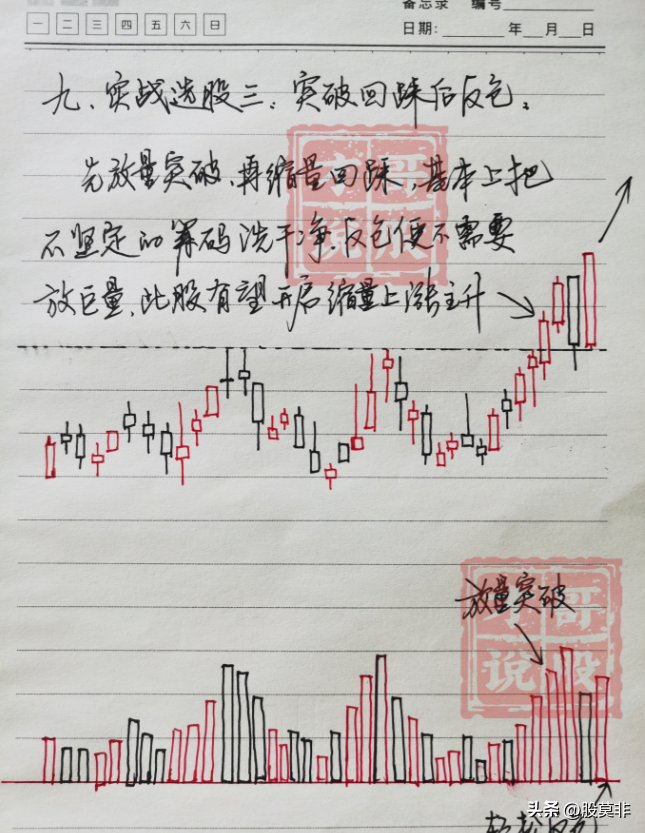 备忘录 编号
一 二 三 四 五 六 日
日期: 年 月 日
九、实战选股三:突破回踩后反包。
先放量突破,再缩量回踩,基本上把
不坚定的筹码洗干净,反包便不需要
放巨量,此股有望开启缩量上涨主升
放量突破
哥
说股
头条 @股莫非